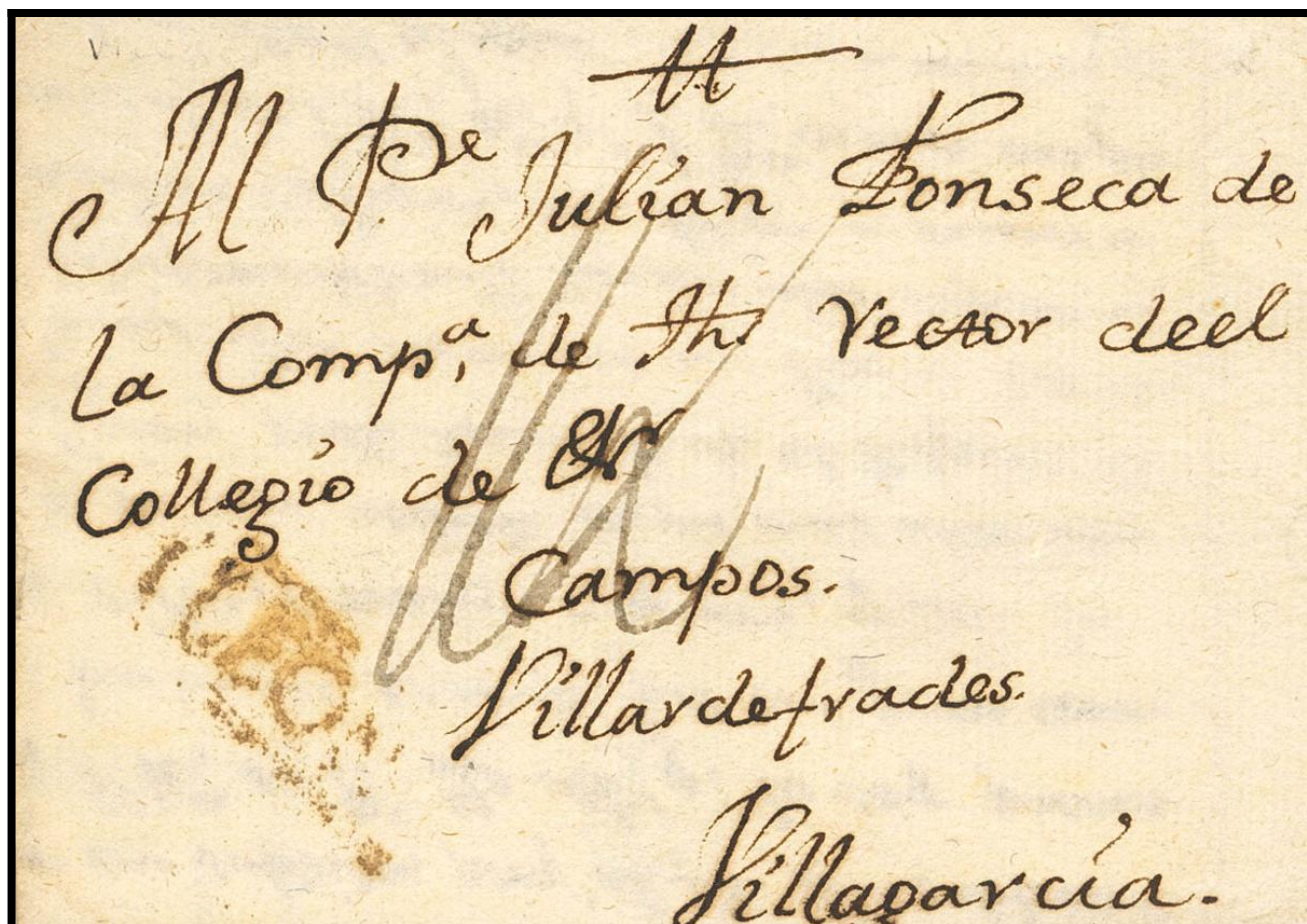 Al P.e Julian Fonseca de
la Comp.a de Jhs Rector deel
Collegio de etc
Campos.
Villardefrades.
Villagarcia.